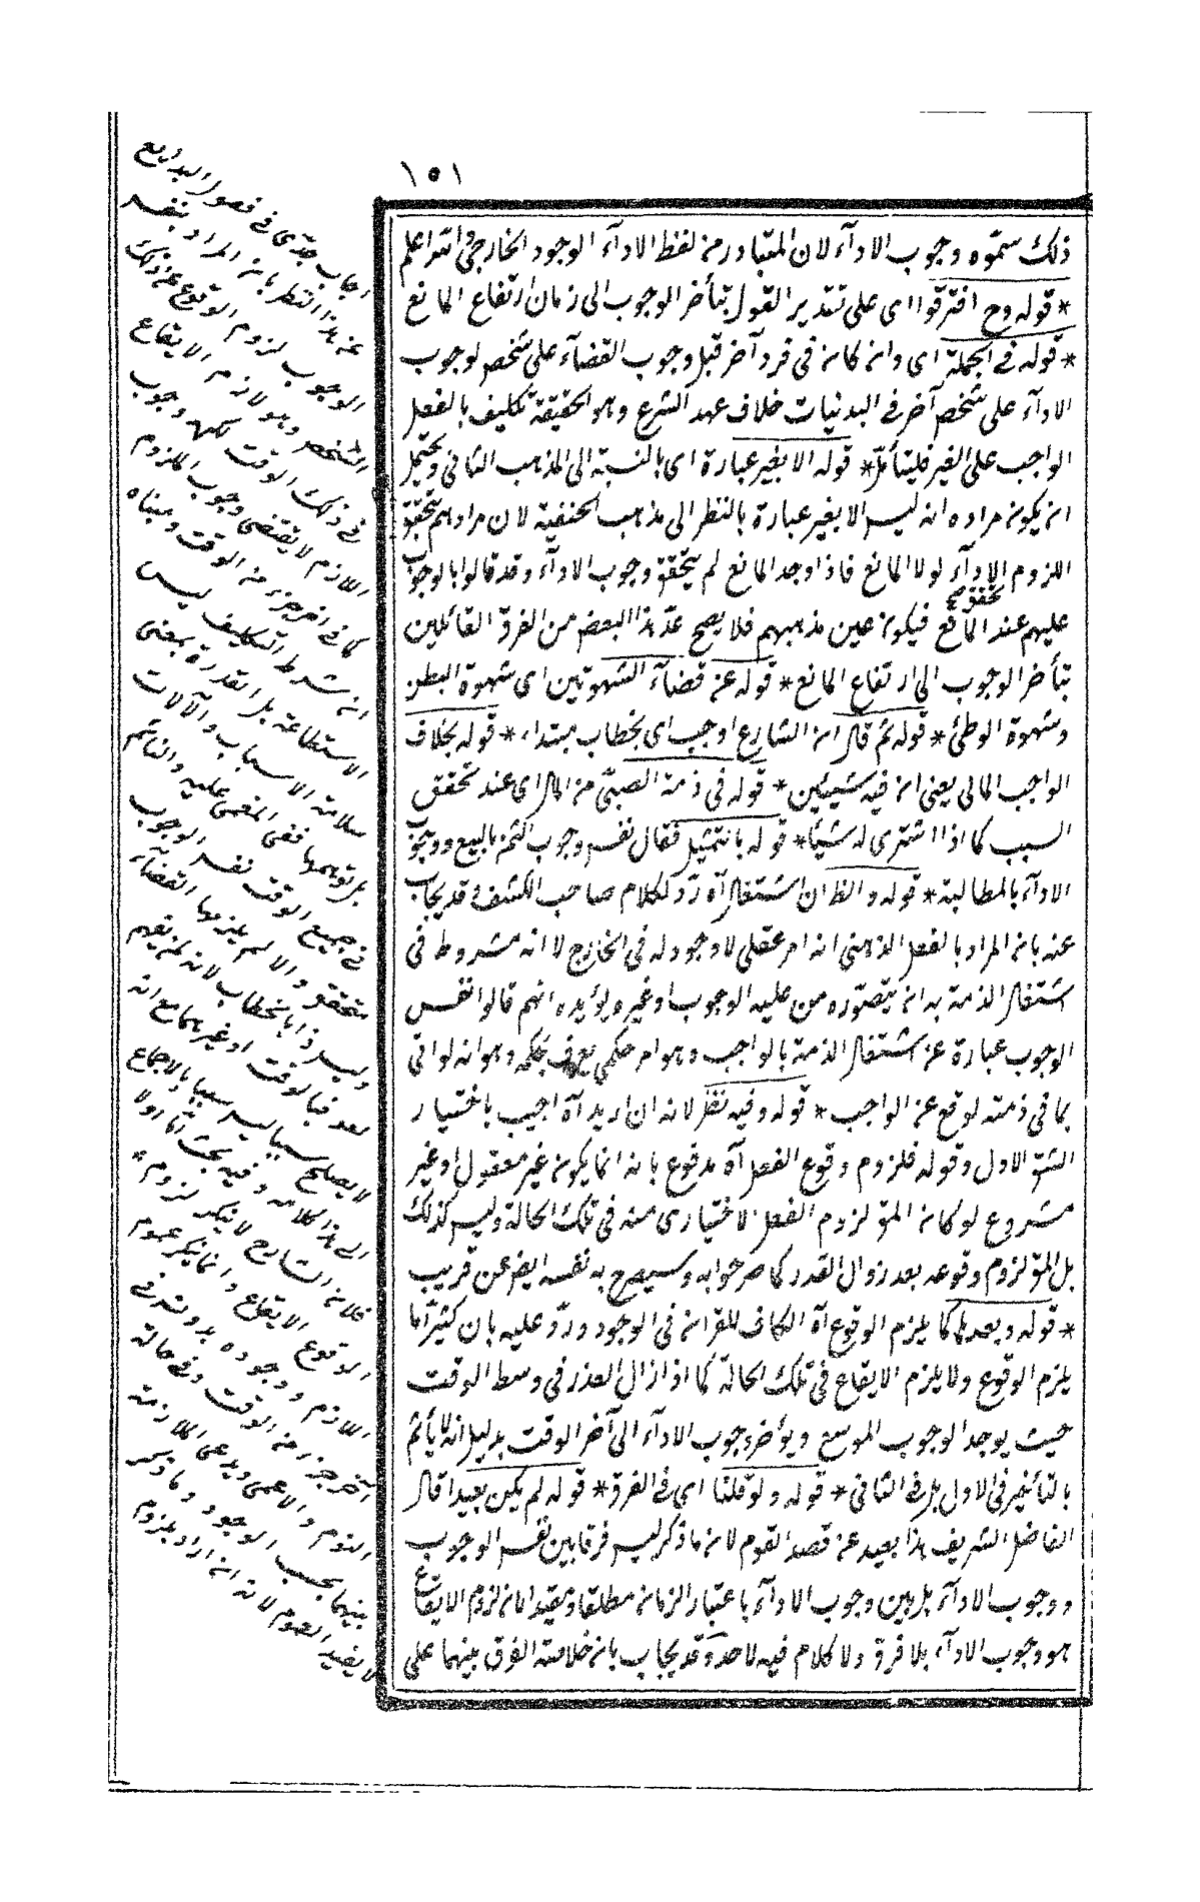 ١٥١
ذلك سموه وجوب الاداء لان المتبادر من لفظ الاداء الوجود الخارجى انتهى اعلم
* قوله وح افترقوا اى على تقدير القول بتأخر الوجوب الى زمان ارتفاع المانع
* قوله فى الجملة اى وان كان فى فرد آخر قبل وجوب القضاء على شخص لوجوب
الاداء على شخص آخر فى البدنيات خلاف عهد الشرع وهو الحقيقة تكليف بالفعل
الواجب على الغير فليتأمل * قوله الا بغير عبارة اى بالنسبة الى المذهب الثانى ويحتمل
ان يكون مراده انه ليس الا بغير عبارة بالنظر الى مذهب الحنفية لان مرادهم تحقق
اللزوم الاداء لولا المانع فاذا وجد المانع لم يتحقق وجوب الاداء وقد قالوا بالوجوب
عليهم عند المانع فيكون عين مذهبهم فلا يصح عد هذا البعض من الفرق القائلين
بتأخر الوجوب الى ارتفاع المانع * قوله عن قضاء الشهوتين اى شهوة البطن
وشهوة الوطئ * قوله ثم قال ان الشارع اوجب اى بخطاب مبتداء * قوله بخلاف
الواجب المالى يعنى ان فيه شيئين * قوله فى ذمة الصبى من المال اى عند تحقق
السبب كما اذا اشترى له شيئا * قوله بالتمثيل فقال نفس وجوب الثمن بالبيع ووجوب
الاداء بالمطالبة * قوله والظ ان اشتغال آه رد لكلام صاحب الكشف وقد يجاب
عنه بان المراد بالفعل الذهنى انه امر عقلى لا وجود له فى الخارج لا انه مشروط فى
اشتغال الذمة به ان يتصوره من عليه الوجوب او غيره ويؤيده انهم قالوا نفس
الوجوب عبارة عن اشتغال الذمة بالواجب وهو امر حكمى يعرف بحكمه وهو انه لو اتى
بما فى ذمته لوقع عن الواجب * قوله وفيه نظر لانه ان اريد آه اجيب باختيار
الشق الاول وقوله فلزوم وقوع الفعل آه مدفوع بانه انما يكون غير معقول او غير
مشروع لو كان المق لزوم الفعل الاختيارى منه فى تلك الحالة وليس كذلك
بل المق لزوم وقوعه بعد زوال العذر كما صرحوا به وسيصرح به نفسه ايض عن قريب
* قوله وبعدها كما يلزم الوقوع آه الكاف للقران فى الوجود ورد عليه بان كثيرا ما
يلزم الوقوع ولا يلزم الايقاع فى تلك الحالة كما اذا زال العذر فى وسط الوقت
حيث يوجد الوجوب الموسع ويؤخر وجوب الاداء الى آخر الوقت بدليل انه لا يأثم
بالتأخير فى الاول بل فى الثانى * قوله ولو قلنا اى فى الفرق * قوله لم يكن بعيدا قال
الفاضل الشريف هذا بعيد عن قصد القوم لان ما ذكر ليس فرقا بين نفس الوجوب
ووجوب الاداء بل بين وجوب الاداء باعتبار الزمان مطلقا ومقيدا لان لزوم الايقاع
هو وجوب الاداء بلا فرق ولا كلام فيه لاحد وقد يجاب بان خلاصة الفرق بينهما على
اجاب جدى فى فصول البدايع
عن هذا النظر بان المراد بنفس
الوجوب لزوم الوقوع عن ذلك
الشخص وهو لازم الايقاع
فى ذلك الوقت لكن وجوب
اللازم لا يقتضى وجوب الملزوم
كما فى اخر جزء من الوقت ومبناه
ان شرط التكليف ليس
الاستطاعة بل القدرة بمعنى
سلامة الاسباب والآلات
بل توهمها ففى المغمى عليه والنائم
فى جميع الوقت نفس الوجوب
متحقق والا لم يلزمها القضاء
وليس ذا بالخطاب لانه لمن يفهم
بعد فبالوقت او غيره مما مع انه
لا يصلح سببا ليس سببا بالاجماع
الى هذا كلامه وفيه بحث اما اولا
فلان الشارح لا ينكر لزوم
الوقوع الايقاع وانما ينكر عموم
اللازم ووجوده بدونه فى
آخر جزء من الوقت وفى حالة
النوم والاغماء ويدعى الملازمة
بينهما بحسب الوجود وما ذكر
لا يفيد العموم لانه ان اراد بلزوم